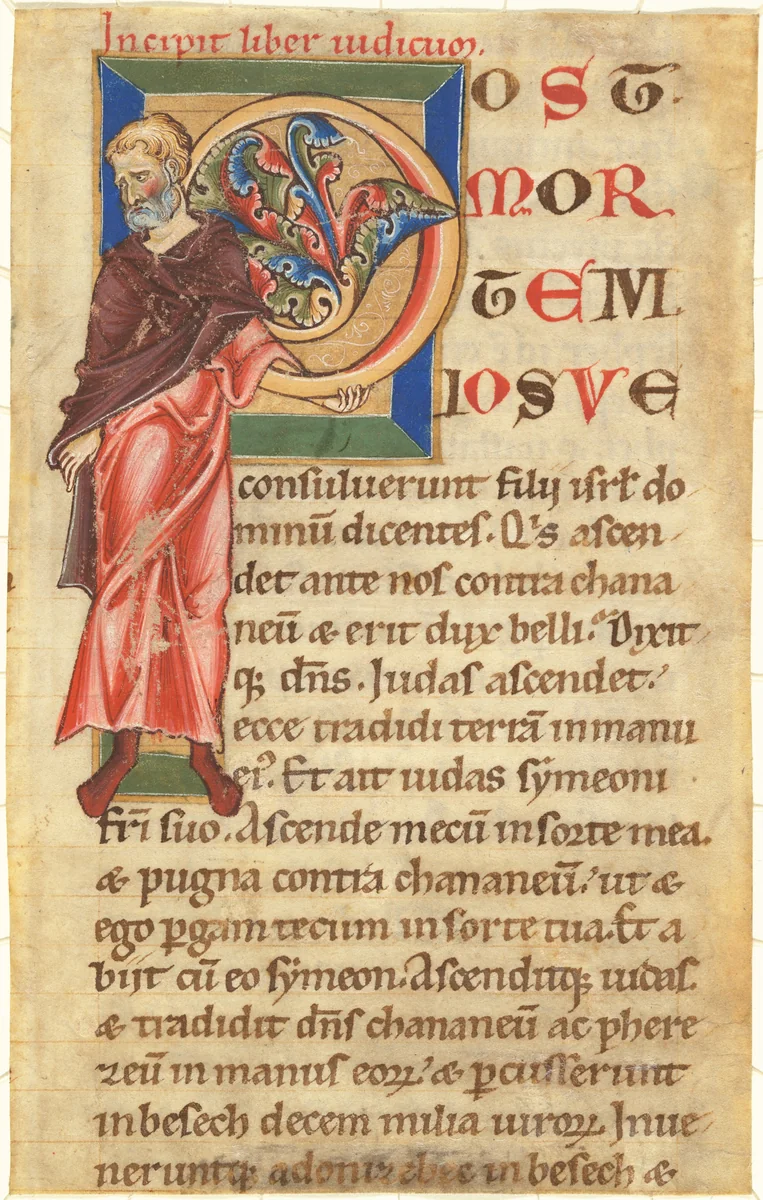 Incipit liber iudicum.
POST
MOR
TEM
IOSVE
consuluerunt filij isrł do
minū dicentes. Qis ascen
det ante nos contra chana
neū & erit dux belli? Dixit
q; dn̄s. Judas ascendet.
ecce tradidi terrā in manu
ei9. Et ait iudas sẏmeoni
fr̄i suo. Ascende mecū in sorte mea.
& pugna contra chananeū. ut &
ego ꝑgam tecum in sorte tua. Et a
biit cū eo sẏmeon. Ascenditq; iudas.
& tradidit dn̄s chananeū ac phere
zeū in manus eoꝝ. & ꝑcusserunt
in besech decem milia uiroꝝ. Inue
neruntq; adoni bes in besech &